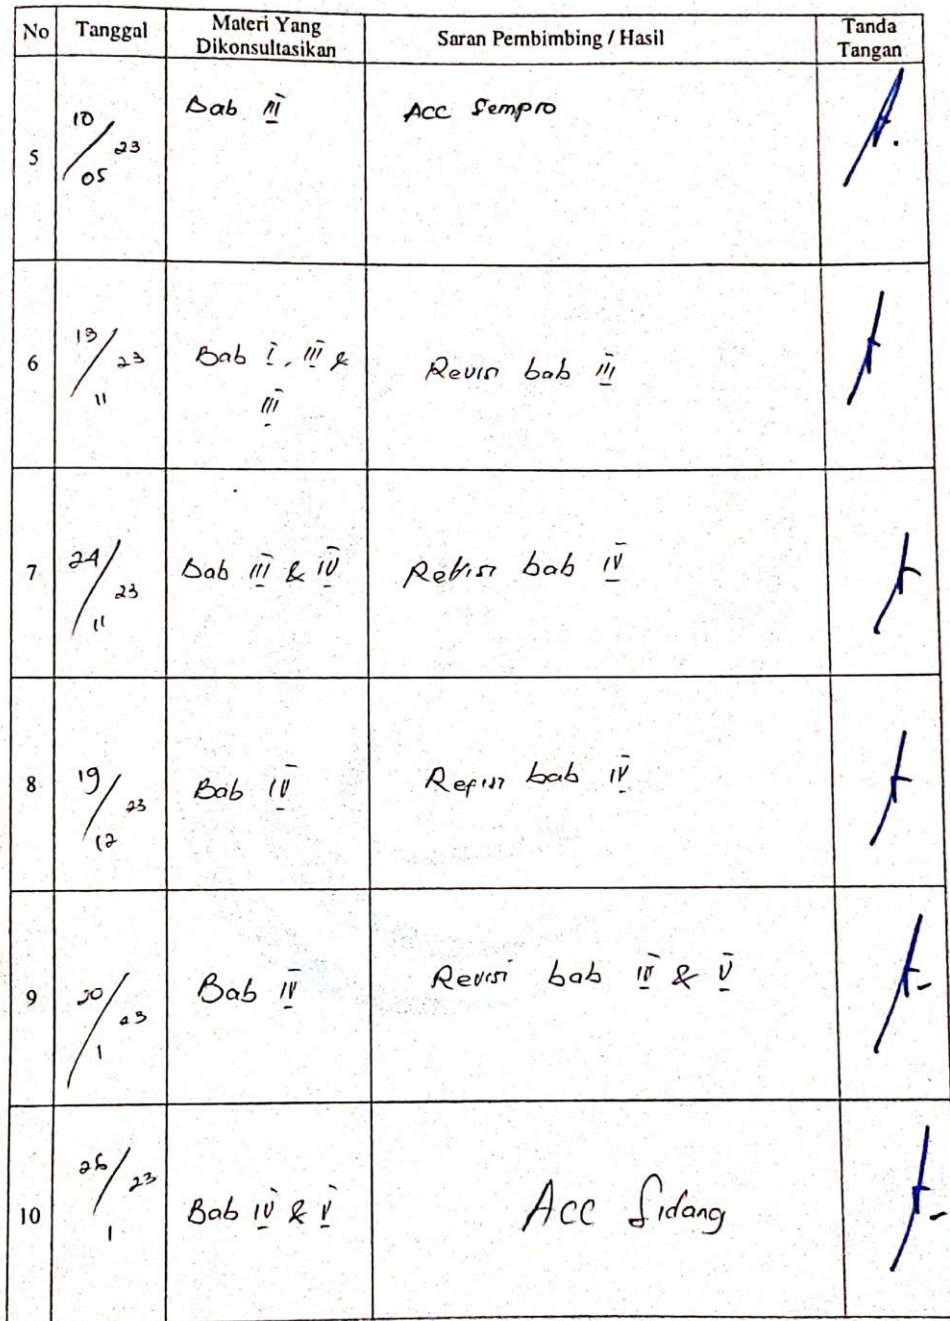 No Tanggal Materi Yang Dikonsultasikan Saran Pembimbing / Hasil Tanda Tangan
5 10/05 23 Bab III Acc Sempro
6 13/11 23 Bab I, III & III Revisi bab III
7 24/11 23 Bab III & IV Revisi bab IV
8 19/12 23 Bab IV Refisi bab IV
9 20/1 23 Bab IV Revisi bab IV & V
10 26/1 23 Bab IV & V Acc Sidang